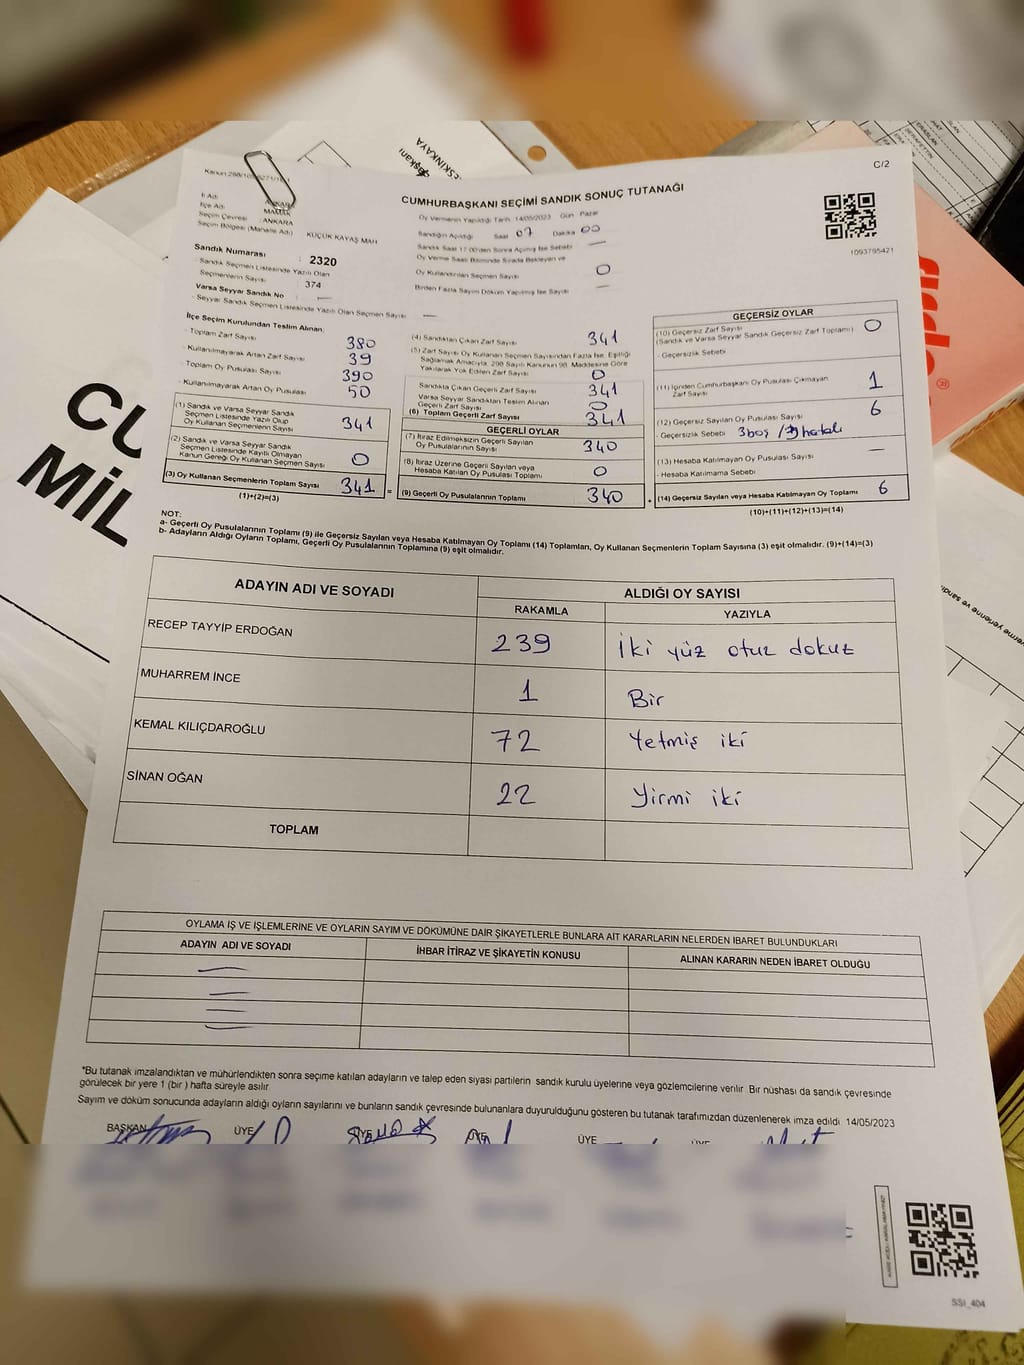 C/2
CUMHURBAŞKANI SEÇİMİ SANDIK SONUÇ TUTANAĞI
1093795421
İl Adı
İlçe Adı MAMAK
Seçim Çevresi : ANKARA
Seçim Bölgesi (Mahalle Adı) KÜÇÜK KAYAŞ MAH
Oy Vermenin Yapıldığı Tarih 14/05/2023 Gün Pazar
Sandığın Açıldığı Saat 07 Dakika 00
Sandık Saat 17:00'den Sonra Açılmış İse Sebebi —
Oy Verme Saati Bitiminde Sırada Bekleyen ve
Oy Kullandırılan Seçmen Sayısı 0
Birden Fazla Sayım Döküm Yapılmış İse Sayısı —
Sandık Numarası : 2320
- Sandık Seçmen Listesinde Yazılı Olan
Seçmenlerin Sayısı 374
Varsa Seyyar Sandık No —
- Seyyar Sandık Seçmen Listesinde Yazılı Olan Seçmen Sayısı —
İlçe Seçim Kurulundan Teslim Alınan:
- Toplam Zarf Sayısı 380
- Kullanılmayarak Artan Zarf Sayısı 39
- Toplam Oy Pusulası Sayısı 390
- Kullanılmayarak Artan Oy Pusulası 50
(1) Sandık ve Varsa Seyyar Sandık
Seçmen Listesinde Yazılı Olup
Oy Kullanan Seçmenlerin Sayısı 341
(2) Sandık ve Varsa Seyyar Sandık
Seçmen Listesinde Kayıtlı Olmayan
Kanun Gereği Oy Kullanan Seçmen Sayısı 0
(3) Oy Kullanan Seçmenlerin Toplam Sayısı 341 =
(1)+(2)=(3)
(4) Sandıktan Çıkan Zarf Sayısı 341
(5) Zarf Sayısı Oy Kullanan Seçmen Sayısından Fazla İse, Eşitliği
Sağlamak Amacıyla, 298 Sayılı Kanunun 98. Maddesine Göre
Yakılarak Yok Edilen Zarf Sayısı 0
Sandıkta Çıkan Geçerli Zarf Sayısı 341
Varsa Seyyar Sandıktan Teslim Alınan
Geçerli Zarf Sayısı 0
(6) Toplam Geçerli Zarf Sayısı 341
GEÇERLİ OYLAR
(7) İtiraz Edilmeksizin Geçerli Sayılan
Oy Pusulalarının Sayısı 340
(8) İtiraz Üzerine Geçerli Sayılan veya
Hesaba Katılan Oy Pusulası Toplamı 0
(9) Geçerli Oy Pusulalarının Toplamı 340
GEÇERSİZ OYLAR
(10) Geçersiz Zarf Sayısı
(Sandık ve Varsa Seyyar Sandık Geçersiz Zarf Toplamı) 0
- Geçersizlik Sebebi
(11) İçinden Cumhurbaşkanı Oy Pusulası Çıkmayan
Zarf Sayısı 1
(12) Geçersiz Sayılan Oy Pusulası Sayısı 6
- Geçersizlik Sebebi 3 boş / hatalı
(13) Hesaba Katılmayan Oy Pusulası Sayısı —
- Hesaba Katılmama Sebebi
(14) Geçersiz Sayılan veya Hesaba Katılmayan Oy Toplamı 6
(10)+(11)+(12)+(13)=(14)
NOT:
a- Geçerli Oy Pusulalarının Toplamı (9) ile Geçersiz Sayılan veya Hesaba Katılmayan Oy Toplamı (14) Toplamları, Oy Kullanan Seçmenlerin Toplam Sayısına (3) eşit olmalıdır. (9)+(14)=(3)
b- Adayların Aldığı Oyların Toplamı, Geçerli Oy Pusulalarının Toplamına (9) eşit olmalıdır.
ADAYIN ADI VE SOYADI ALDIĞI OY SAYISI
RAKAMLA YAZIYLA
RECEP TAYYİP ERDOĞAN 239 İki yüz otuz dokuz
MUHARREM İNCE 1 Bir
KEMAL KILIÇDAROĞLU 72 Yetmiş iki
SİNAN OĞAN 22 Yirmi iki
TOPLAM
OYLAMA İŞ VE İŞLEMLERİNE VE OYLARIN SAYIM VE DÖKÜMÜNE DAİR ŞİKAYETLERLE BUNLARA AİT KARARLARIN NELERDEN İBARET BULUNDUKLARI
ADAYIN ADI VE SOYADI İHBAR İTİRAZ VE ŞİKAYETİN KONUSU ALINAN KARARIN NEDEN İBARET OLDUĞU
—
—
—
—
*Bu tutanak imzalandıktan ve mühürlendikten sonra seçime katılan adayların ve talep eden siyasi partilerin sandık kurulu üyelerine veya gözlemcilerine verilir. Bir nüshası da sandık çevresinde
görülecek bir yere 1 (bir) hafta süreyle asılır.
Sayım ve döküm sonucunda adayların aldığı oyların sayılarını ve bunların sandık çevresinde bulunanlara duyurulduğunu gösteren bu tutanak tarafımızdan düzenlenerek imza edildi. 14/05/2023
BAŞKAN ÜYE ÜYE ÜYE ÜYE
SSI_404
CU
MİL